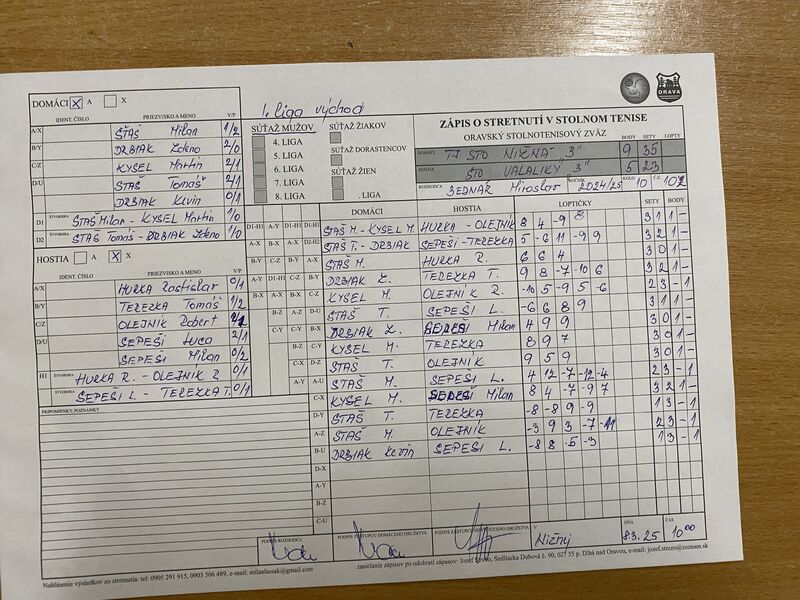 DOMÁCI X A X
IDENT. ČÍSLO PRIEZVISKO A MENO V/P
A/X STAŠ Milan 1/2
B/Y DRBIAK Zdeno 2/0
C/Z KYSEL Martin 2/1
D/U STAŠ Tomáš 2/1
DRBIAK Kevin 0/1
D1 ŠTVORHRA STAŠ Milan - KYSEL Martin 1/0
D2 ŠTVORHRA STAŠ Tomáš - DRBIAK Zdeno 1/0
HOSTIA A X X
IDENT. ČÍSLO PRIEZVISKO A MENO V/P
A/X HURKA Rastislav 0/1
B/Y TEREZKA Tomáš 1/2
C/Z OLEJNÍK Robert
D/U SEPEŠI Luca 2/1
SEPEŠI Milan 0/2
H1 ŠTVORHRA HURKA R. - OLEJNÍK R 0/1
ŠTVORHRA SEPEŠI L - TEREZKA T. 0/1
PRIPOMIENKY, POZNÁMKY
1. liga východ
SÚŤAŽ MUŽOV
4. LIGA
5. LIGA
6. LIGA
7. LIGA
8. LIGA
SÚŤAŽ ŽIAKOV
SÚŤAŽ DORASTENCOV
SÚŤAŽ ŽIEN
. LIGA
ORAVA
ZÁPIS O STRETNUTÍ V STOLNOM TENISE
ORAVSKÝ STOLNOTENISOVÝ ZVÄZ
BODY SETY LOPTY
DOMÁCI TJ STO NIŽNÁ "3" 9 35
HOSTIA ŠTO VALALIKY "3" 5 23
ROZHODCA BEDNÁR Miroslav ROČNÍK 2024/25 KOLO 10 Č.Z. 102
DOMÁCI HOSTIA LOPTIČKY SETY BODY
D1-H1 A-Y D1-H1 D1-H1 STAŠ M. - KYSEL M. HURKA - OLEJNÍK 8 4 -9 8 3 1 1 -
A-X B-X A-X D2-H2 STAŠ T. - DRBIAK SEPEŠI - TEREZKA 5 -6 11 -9 9 3 2 1 -
B-Y C-Z B-Y A-X STAŠ M. HURKA R. 6 6 4 3 0 1 -
A-Y D1-H1 C-Z B-Y DRBIAK Z. TEREZKA T. 9 8 -7 -10 6 3 2 1 -
B-X A-X B-X C-Z KYSEL M. OLEJNÍK R. -10 5 -9 5 -6 2 3 - 1
B-Z A-Z D-U STAŠ T. SEPEŠI L. -6 6 8 9 3 1 1 -
C-Y C-Y B-X DRBIAK Z. SEPEŠI Milan 4 9 9 3 0 1 -
B-Z C-Y KYSEL M. TEREZKA 8 9 7 3 0 1 -
C-X D-Z STAŠ T. OLEJNÍK 9 5 9 3 0 1 -
A-Y A-U STAŠ M. SEPEŠI L. 4 12 -7 -12 -4 2 3 - 1
C-X KYSEL M. SEPEŠI Milan 8 4 -7 -9 7 3 2 1 -
D-Y STAŠ T. TEREZKA -8 -8 9 -9 1 3 - 1
A-Z STAŠ M. OLEJNÍK -3 9 3 -7 -11 2 3 - 1
B-U DRBIAK Kevin SEPEŠI L. -8 8 -5 -3 1 3 - 1
D-X
A-Y
B-Z
C-U
PODPIS ROZHODCU PODPIS ZÁSTUPCU DOMÁCEHO DRUŽSTVA PODPIS ZÁSTUPCU HOSŤUJÚCEHO DRUŽSTVA V Nižnej DŇA 8.3.25 ČAS 10 00
Nahlásenie výsledkov zo stretnutia: tel: 0905 291 915, 0903 506 489, e-mail: milanlassak@gmail.com zasielanie zápisov po odohratí zápasov: Jozef Strežo, Sedliacka Dubová č. 90, 027 55 p. Dlhá nad Oravou, e-mail: jozef.strezo@zoznam.sk